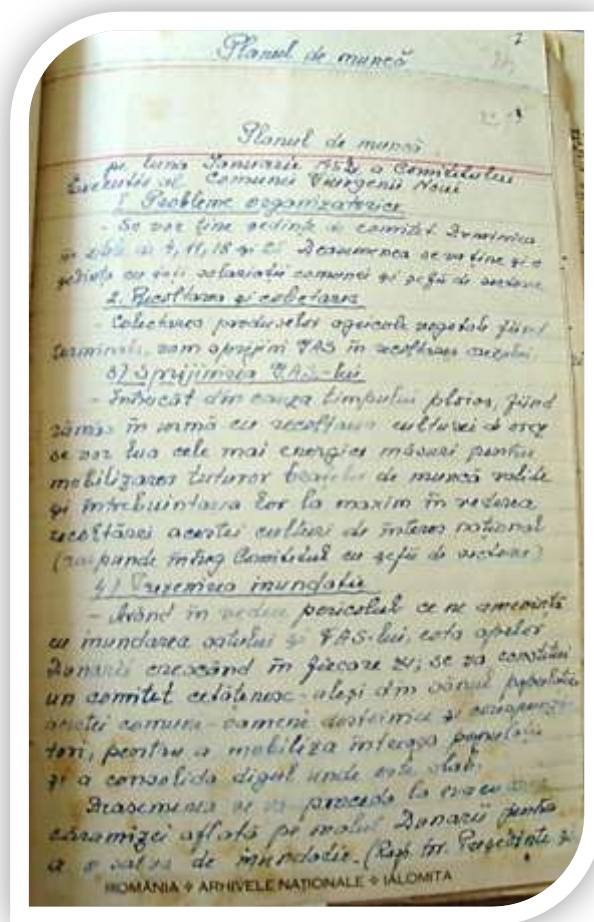 Planul de muncă
Planul de muncă
pe luna Ianuarie 1952 a Comitetului
Executiv al Comunei Viișoara Nouă
1. Probleme organizatorice
- Se vor ține ședințe de comitet Duminica
în zilele de 4, 11, 18 și 25. Deasemenea se va ține și o
ședință cu toți salariații comunei și șefii de sectoare
2. Recoltarea și colectarea
- Colectarea produselor agricole vegetale fiind
terminată, vom sprijini GAS în recoltarea orezului
3) Sprijinirea GAS-lui
- Întrucât din cauza timpului ploios, fiind
rămas în urmă cu recoltarea culturei de orez
se vor lua cele mai energice măsuri pentru
mobilizarea tuturor brațelor de muncă valide
și întrebuințarea lor la maxim în vederea
recoltărei acestei culturi de interes național
(răspunde întreg Comitetul cu șefii de sectoare)
4) Prevenirea inundație
- Având în vedere pericolul ce ne amenință
cu inundarea satului și GAS-lui, cota apelor
Dunării crescând în fiecare zi, se va constitui
un comitet cetățenesc - aleși din sânul populației
acestei comune - oameni destoinici și
pentru a mobiliza întreaga populație
și a consolida digul unde este slab.
Deasemenea se va proceda la evacuarea
cărămizei aflată pe malul Dunării pentru
a o salva de inundație. (Resp. tov. Președinte și
ROMÂNIA ❖ ARHIVELE NAȚIONALE ❖ IALOMIȚA